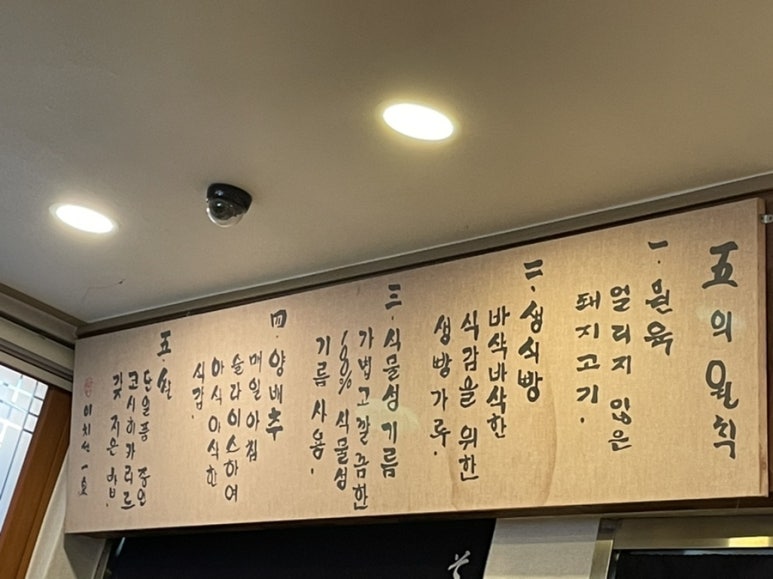 五의 원칙
一. 원육
얼리지 않은
돼지고기.
二. 생식빵
바삭바삭한
식감을 위한
생빵가루.
三. 식물성기름
가볍고깔끔한
100% 식물성
기름 사용.
四. 양배추
매일아침
슬라이스하여
아삭아삭한
식감.
五. 쌀
단일품종인
코시히카리로
갓 지은 밥.